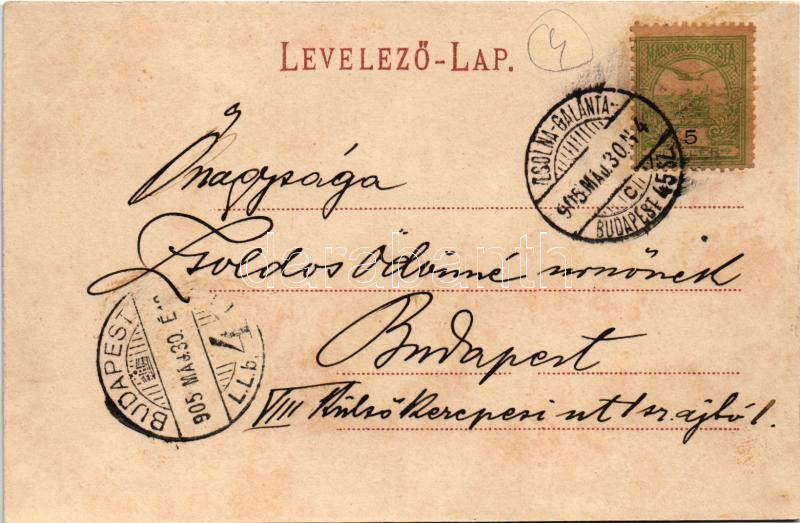 LEVELEZŐ-LAP.
MAGYAR KIR. POSTA
5
ZSOLNA-GALÁNTA-
905 MAJ. 30. N 4
C
BUDAPEST 45 SZ.
Őnagysága
Zsoldos Ödönné
Budapest
VIII Külső Kerepesi ut 1 sz. ajtó 1.
BUDAPEST
905 MÁJ. 30.
4
L.L.b.
darabanth